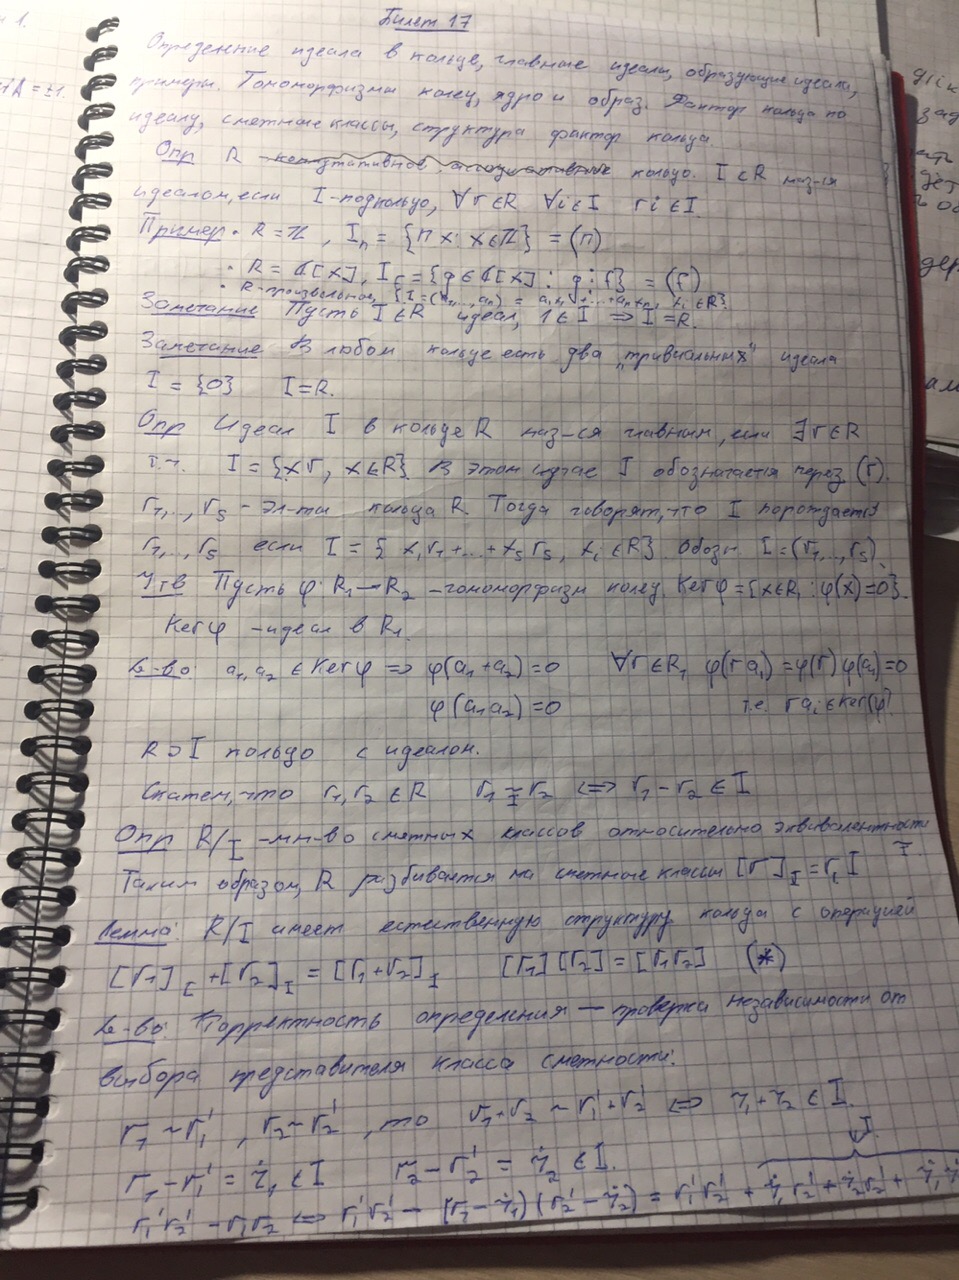 Билет 17
Определение идеала в кольце, главные идеалы, образующие идеала,
примеры. Гомоморфизмы колец, ядро и образ. Фактор кольца по
идеалу, смежные классы, структура фактор кольца.
Опр R кольцо. I ⊂ R наз-ся
идеалом, если I - подкольцо, ∀r∈R ∀i∈I ri∈I
Пример • R = ℤ, I_n = {nx : x∈ℤ} = (n)
• R = ℂ[x], I_f = {g∈ℂ[x] : g ⋮ f} = (f)
• R - произвольное,
Замечание Пусть I ∈ R идеал, 1∈I ⇒ I = R.
Замечание В любом кольце есть два "тривиальных" идеала
I = {0} I = R.
Опр Идеал I в кольце R наз-ся главным, если ∃r∈R
т.ч. I = {xr, x∈R}. В этом случае I обозначается через (r).
r₁,..., r_s - эл-ты кольца R. Тогда говорят, что I порождается
r₁,..., r_s если I = {x₁r₁+...+x_s r_s, x_i∈R}. Обозн. I = (r₁,..., r_s)
Утв Пусть φ: R₁→R₂ - гомоморфизм колец Ker φ = {x∈R₁ : φ(x)=0}.
Ker φ - идеал в R₁.
Д-во: a₁, a₂ ∈ Ker φ ⇒ φ(a₁+a₂)=0 ∀r∈R₁ φ(ra₁) = φ(r)φ(a₁)=0
φ(a₁a₂)=0 т.е. ra₁∈Ker(φ)
R ⊃ I кольцо с идеалом.
Скажем, что r₁, r₂ ∈ R r₁ ~_I r₂ ⇔ r₁ - r₂ ∈ I
Опр R/I - мн-во смежных классов относительно эквивалентности ~_I.
Таким образом, R разбивается на смежные классы [r]_I = r, I
Лемма: R/I имеет естественную структуру кольца с операцией
[r₁]_I + [r₂]_I = [r₁+r₂]_I [r₁][r₂] = [r₁r₂] (*)
Д-во: Корректность определения — проверка независимости от
выбора представителя класса смежности:
r₁ ~ r₁', r₂ ~ r₂', то r₁+r₂ ~ r₁'+r₂' ⇔ i₁+i₂ ∈ I.
r₁ - r₁' = i₁ ∈ I r₂ - r₂' = i₂ ∈ I. I
r₁'r₂' - r₁r₂ ⇔ r₁'r₂' - (r₁ - i₁)(r₂' - i₂) = r₁'r₂' + i₁r₂' + i₂r₂' +